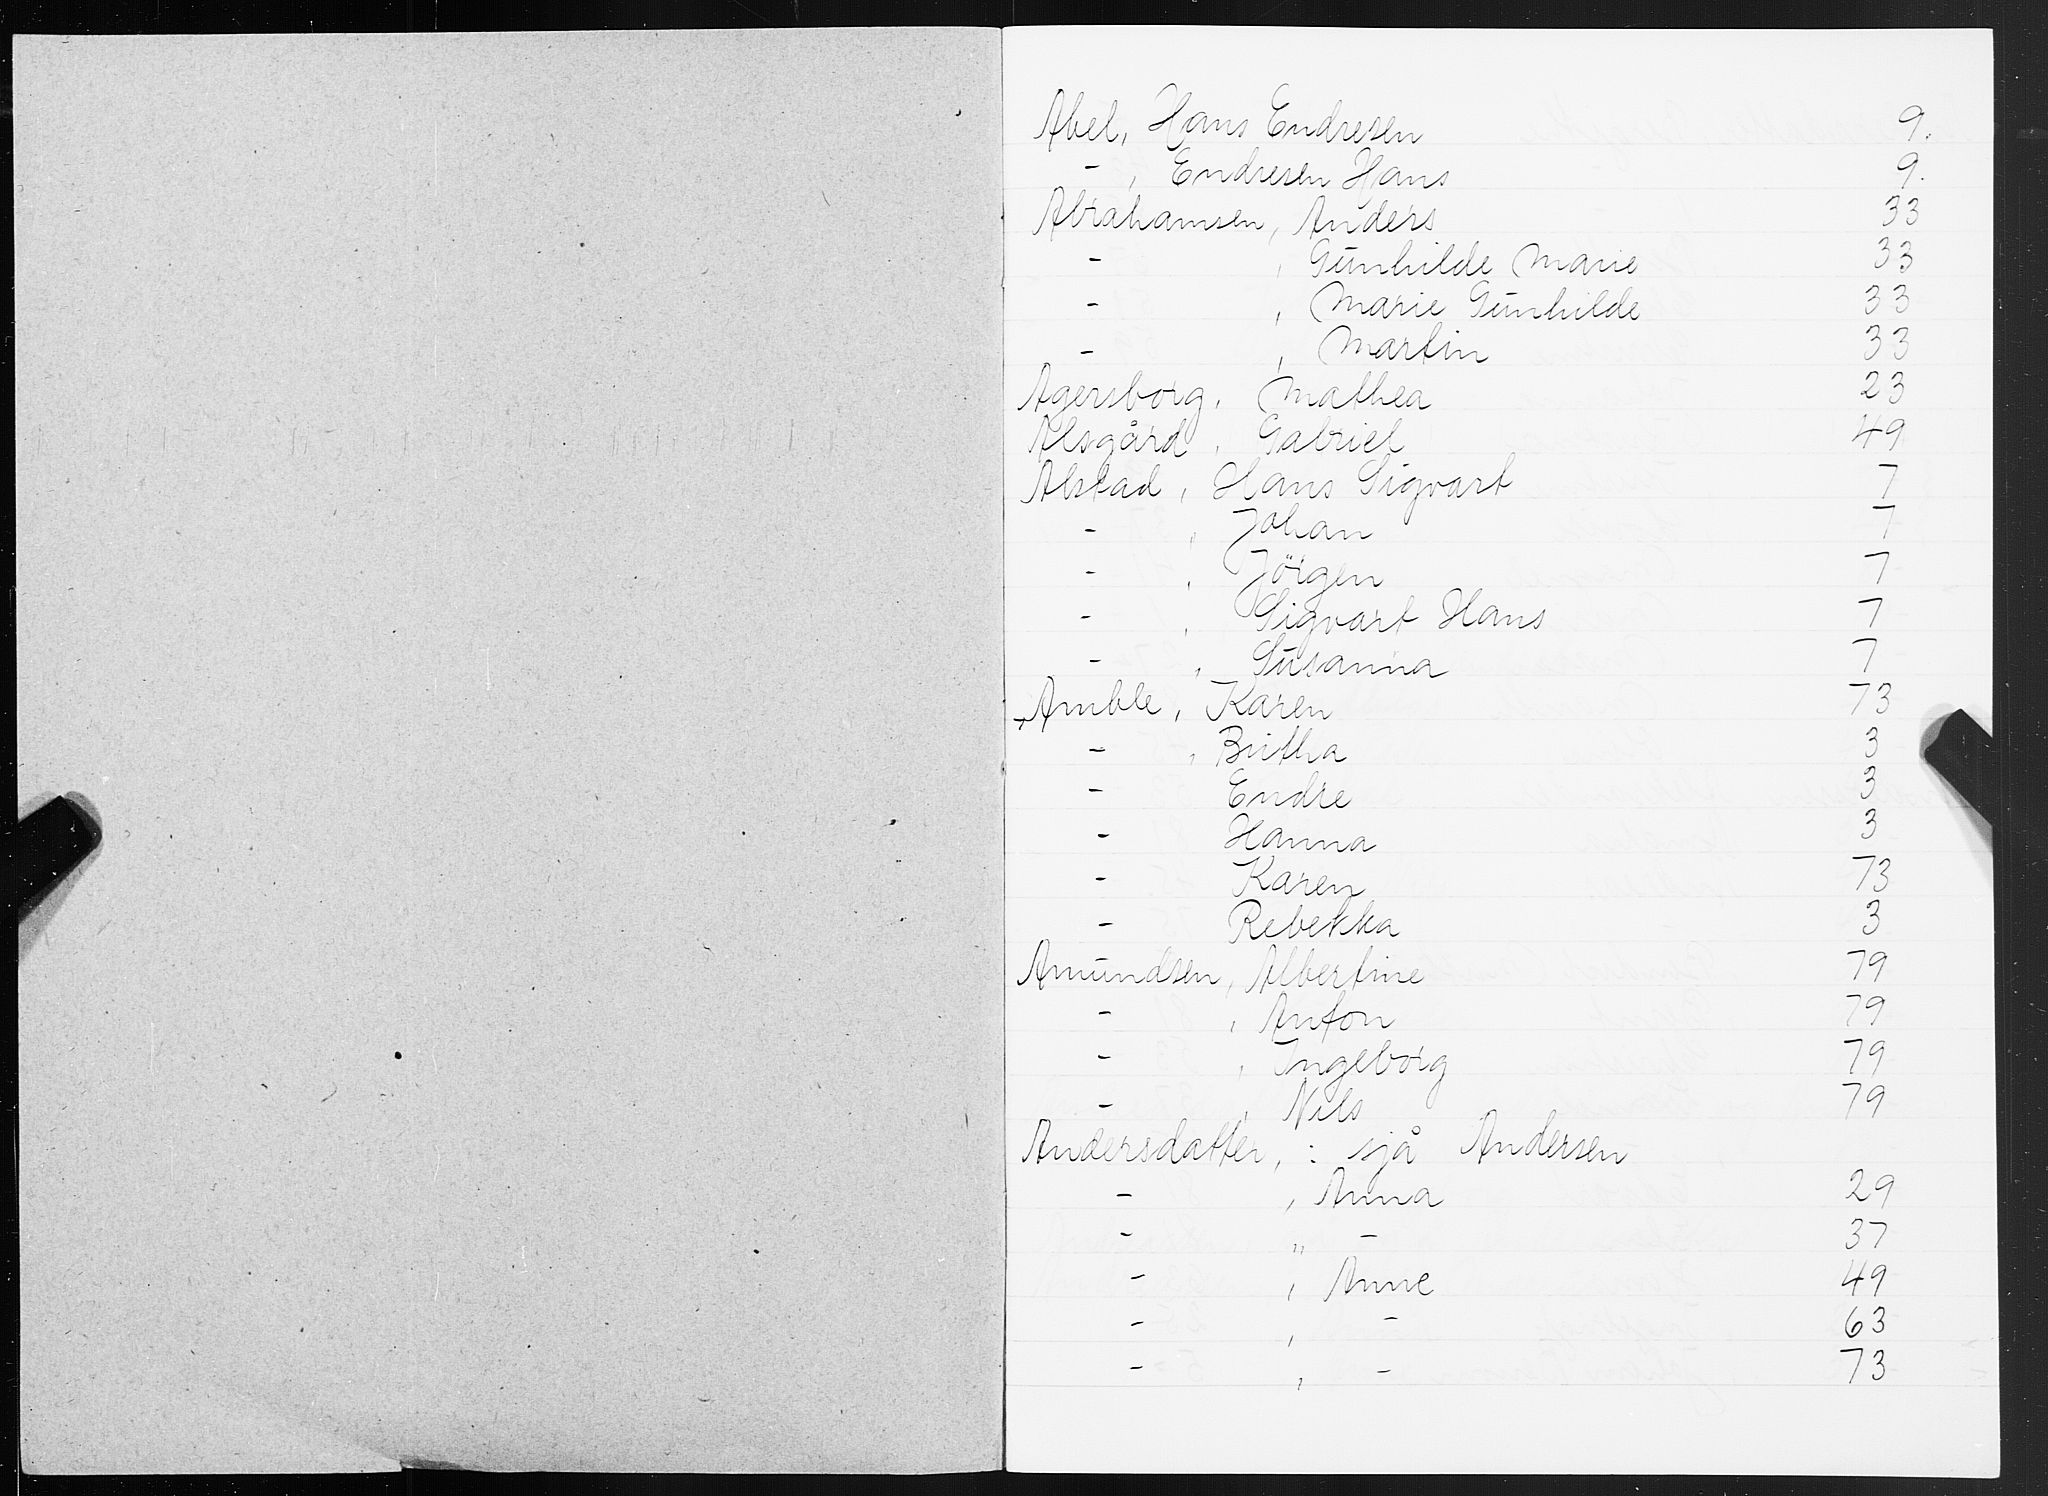 Abel, Hans Endresen 9.
- , Endresen Hans 9.
Abrahamsen, Anders 33
- , Gunhilde Marie 33
- , Marie Gunhilde 33
- , Martin 33
Agersborg, Mathea 23
Alsgård, Gabriel 49
Alstad, Hans Sigvart 7
- , Johan 7
- , Jörgen 7
- , Sigvart Hans 7
- , Susanna 7
Amble, Karen 73
- , Britha 3
- Endre 3
- Hanna 3
- Karen 73
- Rebekka 3
Amundsen, Albertine 79
- , Anton 79
- , Ingeborg 79
- , Nils 79
Andersdatter, : sjå Andersen
- , Anna 29
- " - 37
- , Anne 49
- , - 63
- , - 73